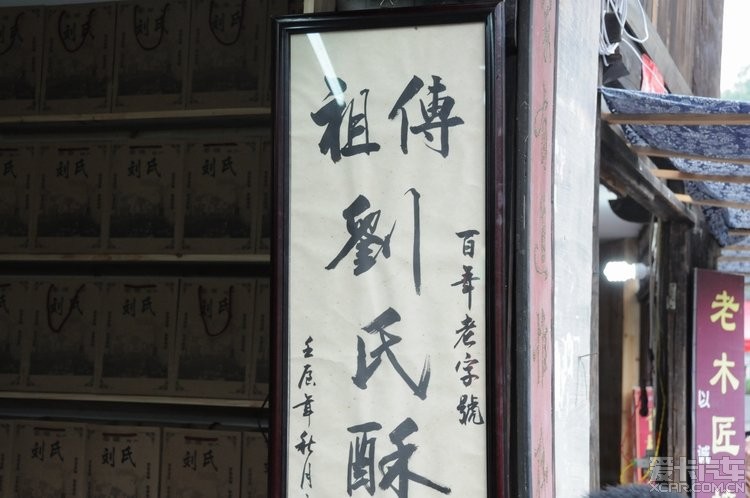 祖傳
劉氏酥
百年老字號
壬辰年秋月
老木匠
以誠
刘氏
刘氏
刘氏
刘氏
刘氏
刘氏
刘氏
刘氏
刘氏
刘氏
刘氏
刘氏
爱卡汽车
XCAR.COM.CN